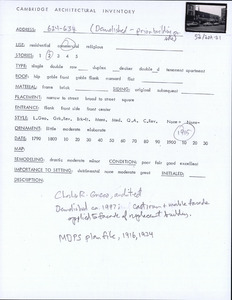 CAMBRIDGE ARCHITECTURAL INVENTORY
ADDRESS: 624-636 (Demolished -
USE: residential commercial religious
STORIES: 1 2 3 4 5
TYPE: single double row duplex double tenement apartment
ROOF: hip gable front gable flank mansard flat
MATERIAL: frame brick SIDING: original subsequent
PLACEMENT: narrow to street broad to street square
ENTRANCE: flank front side front center
ORNAMENT: little moderate elaborate
1915
DATE: 1790 1800 10 20 30 40 50 60 70 80 90 1900 10 20 30
MAP:
REMODELLING: drastic moderate minor CONDITION: poor fair good excellent
IMPORTANCE TO SETTING: deteriorate neut moderate great INITIALED:
DESCRIPTION:
Charles R. Greco, architect
Demolished ca. 1987; cast iron + marble facade
applied to facade of replacement building.
MDPS plan file, 1916, 1924